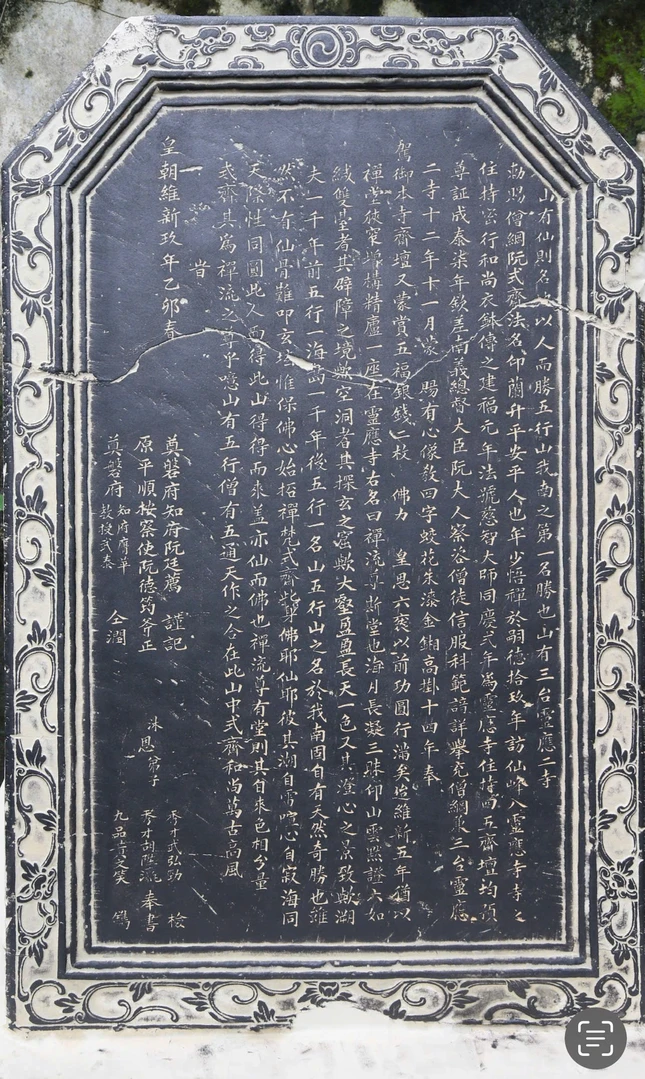 山有仙則名以人而勝五行山我南之第一名勝也山有三台靈應二寺
勅賜僧綱阮式齋法名印蘭升平安平人也年少悟禪於嗣德拾玖年訪仙峰入靈應寺寺之
住持密行和尚衣鉢傳之建福元年法號慈智大師同慶弍年為靈應寺住持西五齋壇均預
尊証成泰柒年欽差南義總督大臣阮大人察咨僧徒信服科範諳詳舉充僧綱兼三台靈應
二寺十二年十一月蒙　賜有心像教四字蛟花朱漆金緗高掛十四年奉
駕御本寺齋壇又蒙賞五福銀錢一枚　佛力　皇恩六奕以前功圓行滿矣维新五年猶以
禪堂狹窄增構精廬一座在靈應寺右名曰禪流尊斯堂也海月長凝三昧印山雲點證六如
緣雙臺者其辟障之境歟空洞者其探玄之窟歟大壑盈盈長天一色又其澄心之景致歟湖
夫一千年前五行一海島一千年後五行一名山五行山之名於我南固自有天然奇勝也雖
然不有仙骨難叩玄埕惟保佛心始招禪梵式齋此身佛耶仙耶彼其湖自雷喧心自寂海同
天際性同圓此人而得此山得得而來盖亦仙而佛也禪流尊有堂則其自來色相分量
式齋其為禪流之尊乎噫山有五行僧有五通天作之合在此山中式齋和尚萬古高風
旹
皇朝維新玖年乙卯春
奠磐府知府阮廷薦　謹記
原平順按察使阮德筠斧正
奠磐府　知府膺華　教授武泰　仝潤
沐恩弟子
秀才武弘勁　檢
秀才胡　奉書
九品　笑　鐫